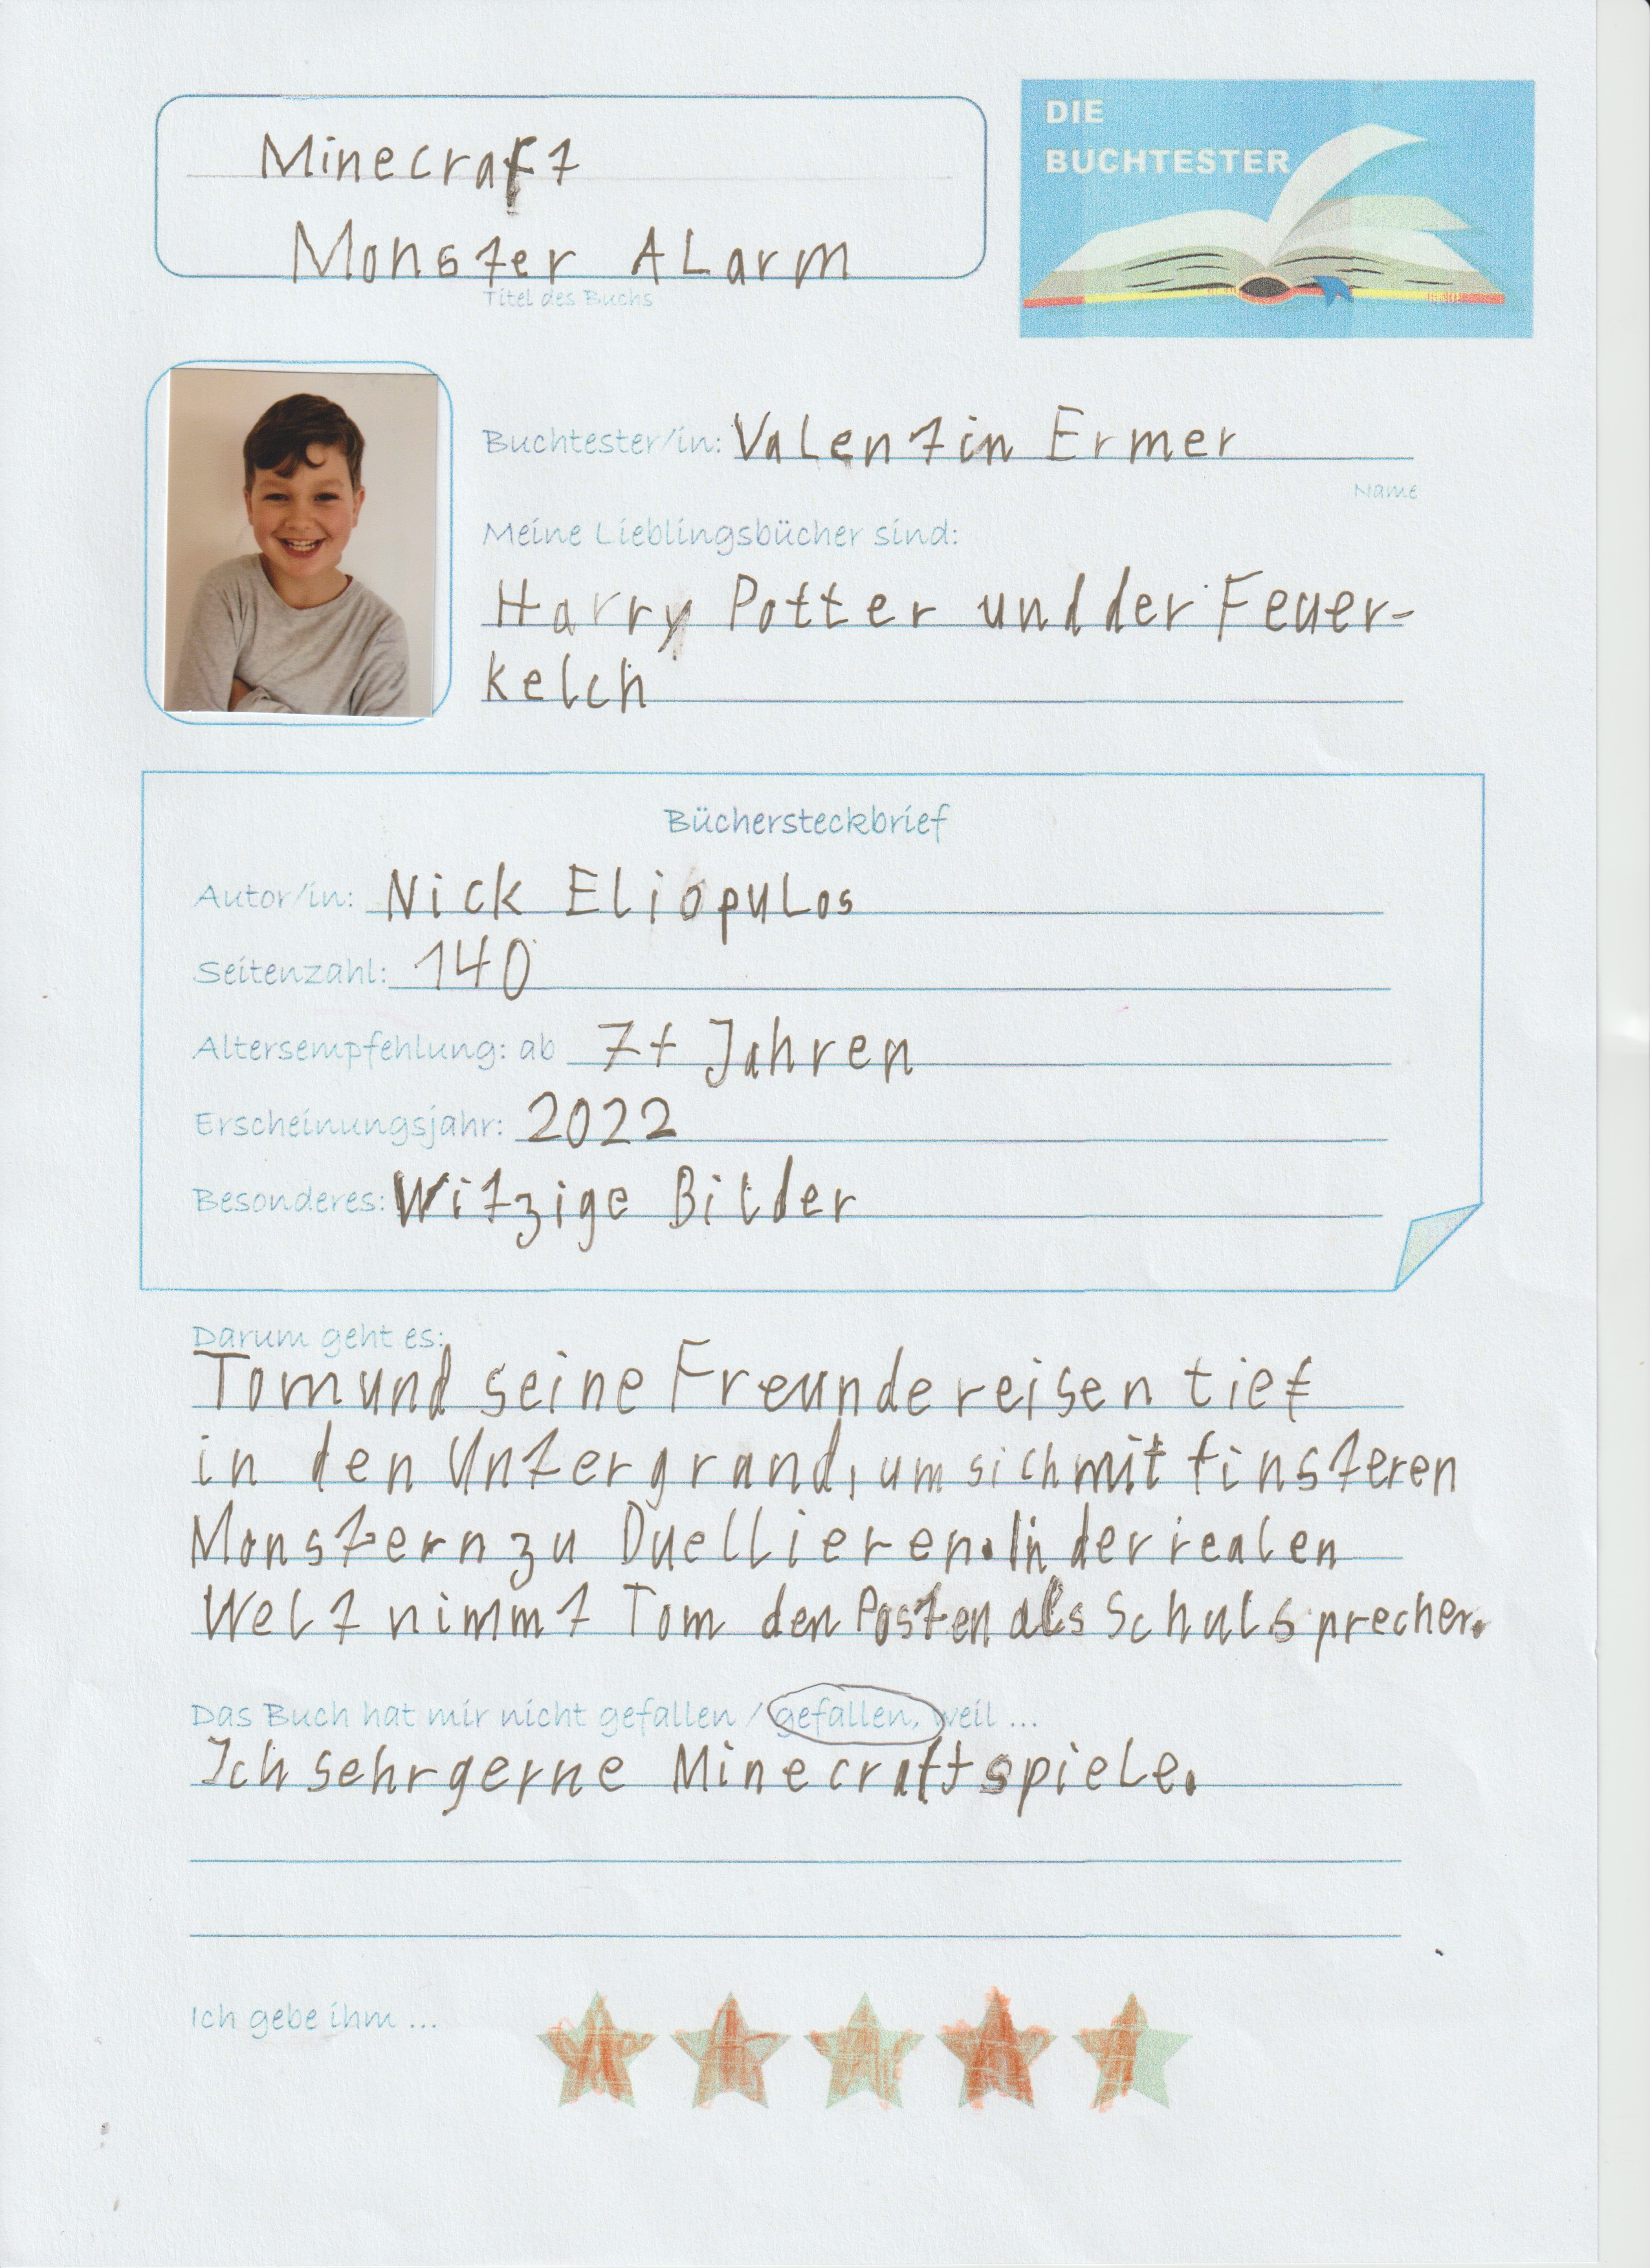 DIE
BUCHTESTER
Minecraft
Monster ALarm
Titel des Buchs
Buchtester/in: Valentin Ermer
Name
Meine Lieblingsbücher sind:
Harry Potter und der Feuer-
kelch
Büchersteckbrief
Autor/in: Nick Eliopulos
Seitenzahl: 140
Altersempfehlung: ab 7+ Jahren
Erscheinungsjahr: 2022
Besonderes: Witzige Bilder
Darum geht es:
Tom und seine Freunde reisen tief
in den Untergrand, um sich mit finsteren
Monstern zu Duellieren. In der realen
Welt nimmt Tom den Posten als Schulsprecher.
Das Buch hat mir nicht gefallen / gefallen, weil ...
Ich sehr gerne Minecraft spiele.
Ich gebe ihm ...